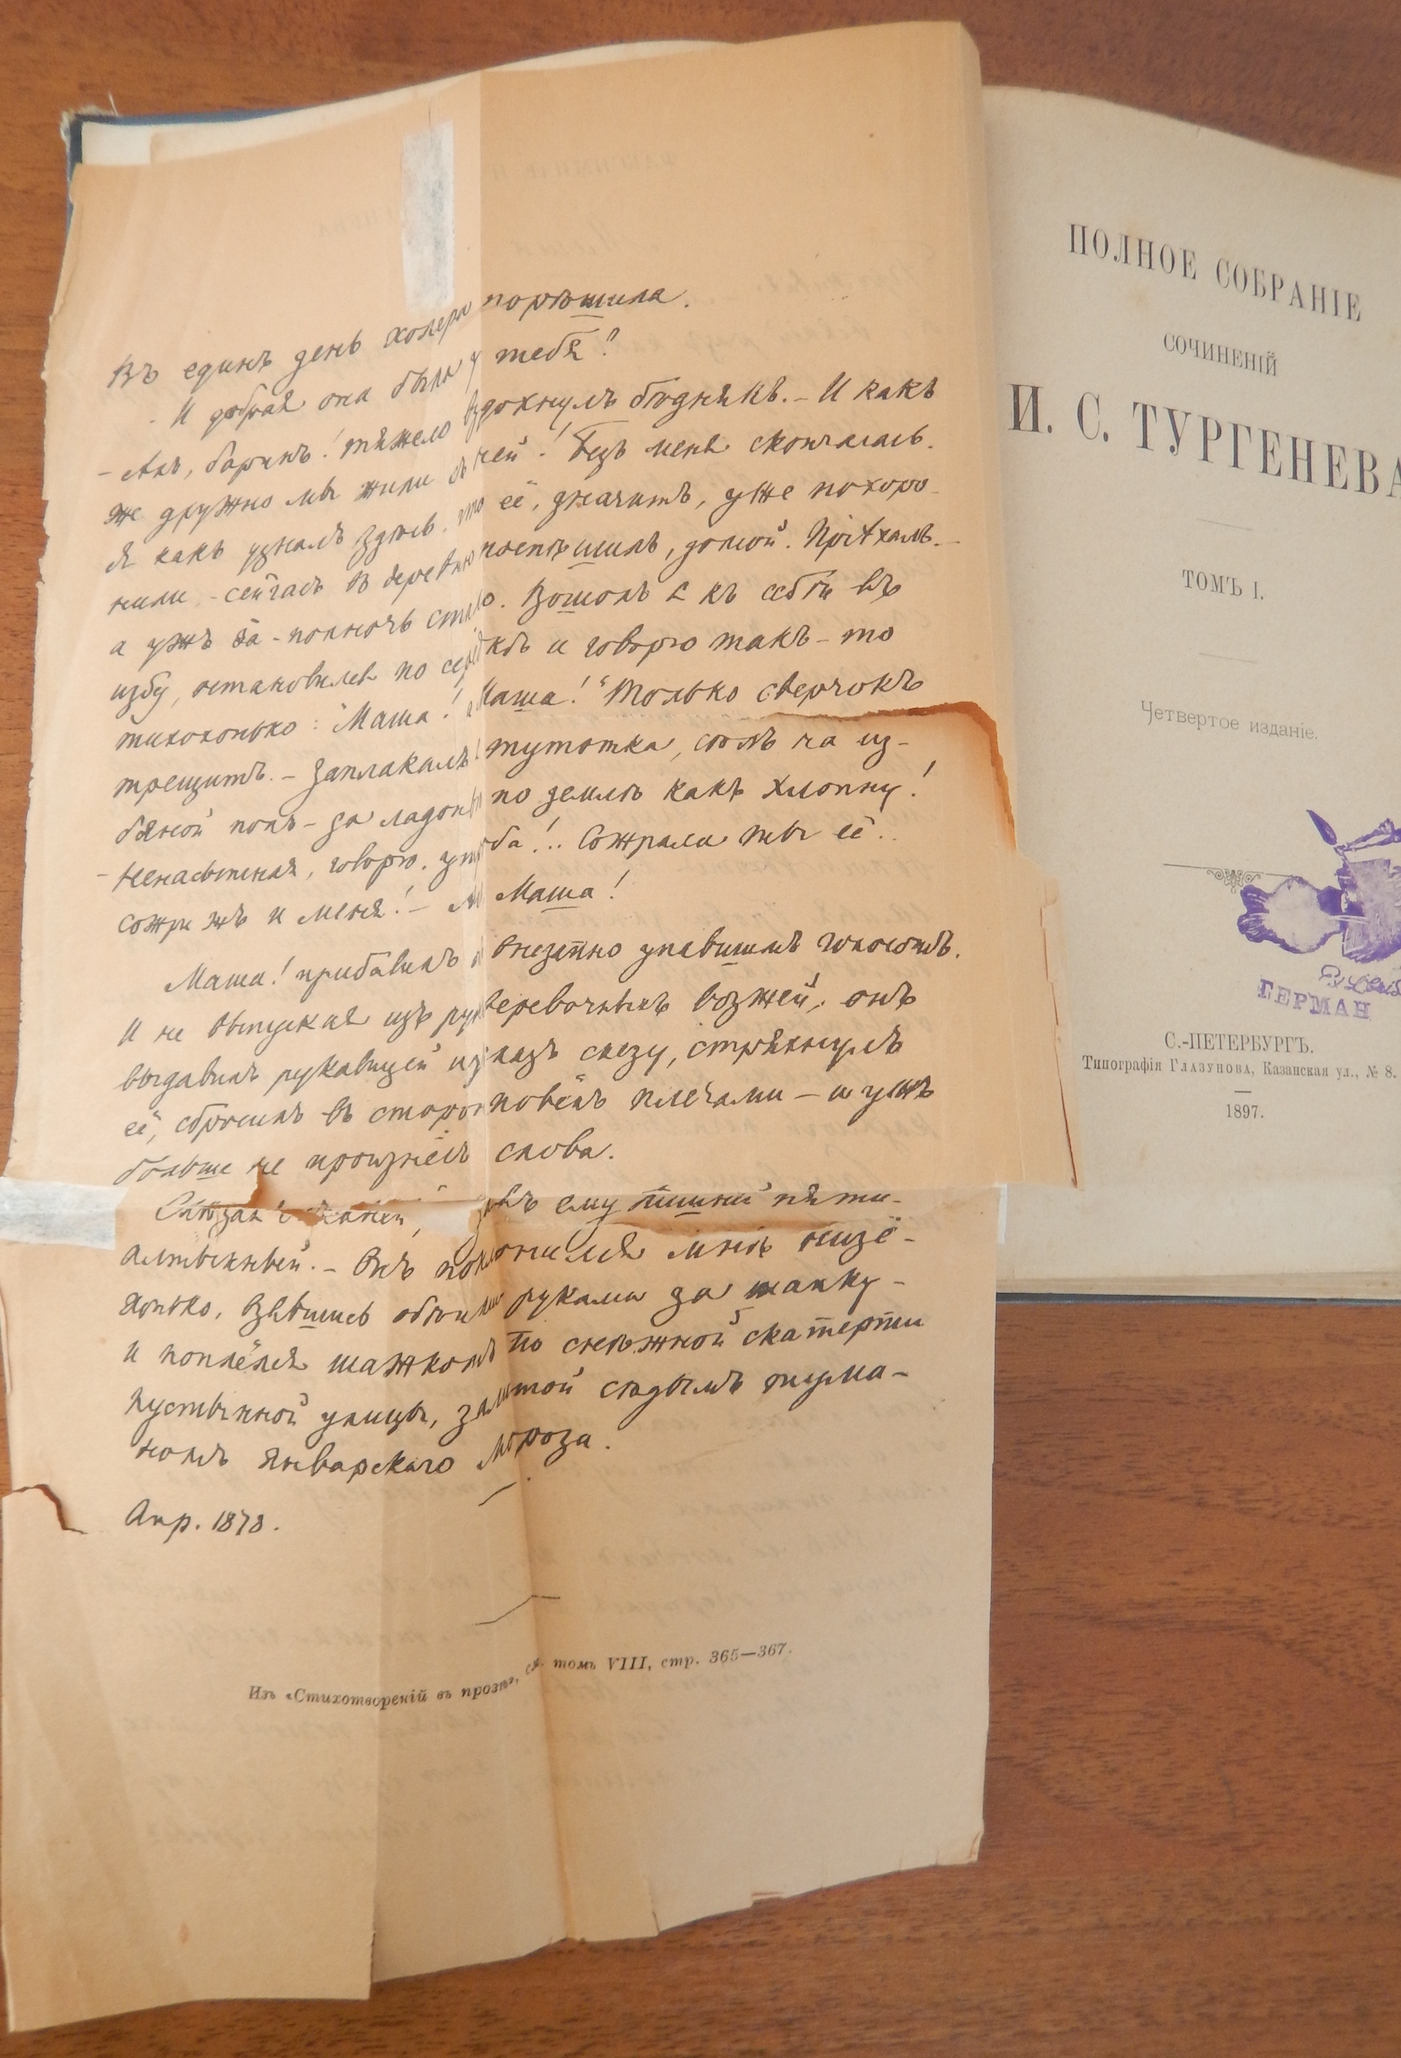 Въ единъ день холера порѣшила.
- И добрая она была у тебя?
- Ахъ, баринъ! тяжело вздохнулъ бѣднякъ. - И какъ
же дружно мы жили съ ней! Безъ меня скончалась.
Я какъ узналъ здѣсь, что её, значитъ, уже похоро-
нили - сейчасъ въ деревню поспѣшилъ, домой. Пріѣхалъ -
а ужъ за-полночь стало. Вошолъ я къ себѣ въ
избу, остановился по серёдкѣ и говорю такъ-то
тихохонько: "Маша! а Маша!" Только сверчокъ
трещитъ. - Заплакалъ я тутотка, сѣлъ на из-
бяной полъ - да ладонью по землѣ какъ хлопну!
- Ненасытная, говорю, утроба!.. Сожрала ты её..
сожри жъ и меня! - Ахъ Маша!
Маша! прибавилъ онъ внезапно упавшимъ голосомъ.
И не выпуская изъ рукъ веревочныхъ возжей, онъ
выдавилъ рукавицей изъ глазъ слезу, стряхнулъ
её, сбросилъ въ сторону, повёлъ плечами - и ужъ
больше не произнёсъ слова.
Слѣзая съ саней, далъ ему лишній пяти-
алтынный. - Онъ поклонился мнѣ низё-
хонько, взявшись обѣими руками за шапку -
и поплёлся шажкомъ по снѣжной скатерти
пустынной улицы, залитой сѣдымъ тума-
номъ январскаго мороза.
Апр. 1878.
Изъ «Стихотвореній въ прозѣ», см. томъ VIII, стр. 365—367.
ПОЛНОЕ СОБРАНІЕ
СОЧИНЕНІЙ
И. С. ТУРГЕНЕВА
ТОМЪ I.
Четвертое изданіе.
ГЕРМАН
С.-ПЕТЕРБУРГЪ.
Типографія Глазунова, Казанская ул., № 8.
1897.